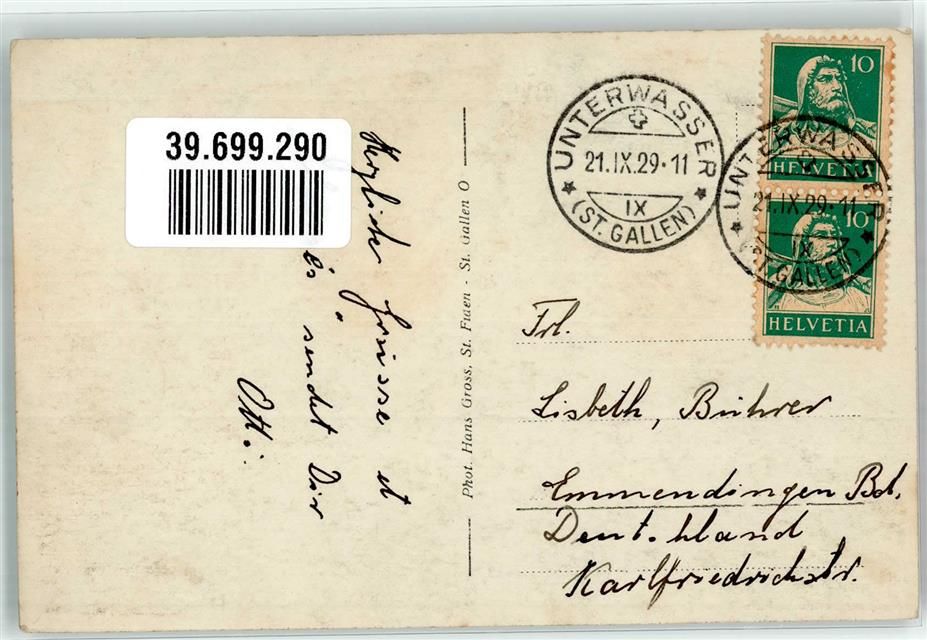 39.699.290
Herzliche Grüsse et
sendet Dir
Otti.
Phot. Hans Gross, St. Fiden - St. Gallen O
UNTERWASSER
21.IX.29·11
IX
(ST. GALLEN)
10
HELVETIA
UNTERWASSER
21.IX.29·11
IX
(ST. GALLEN)
10
HELVETIA
Frl.
Lisbeth, Bührer
Emmendingen Bd.
Deutschland
Karlfriedrichstr.